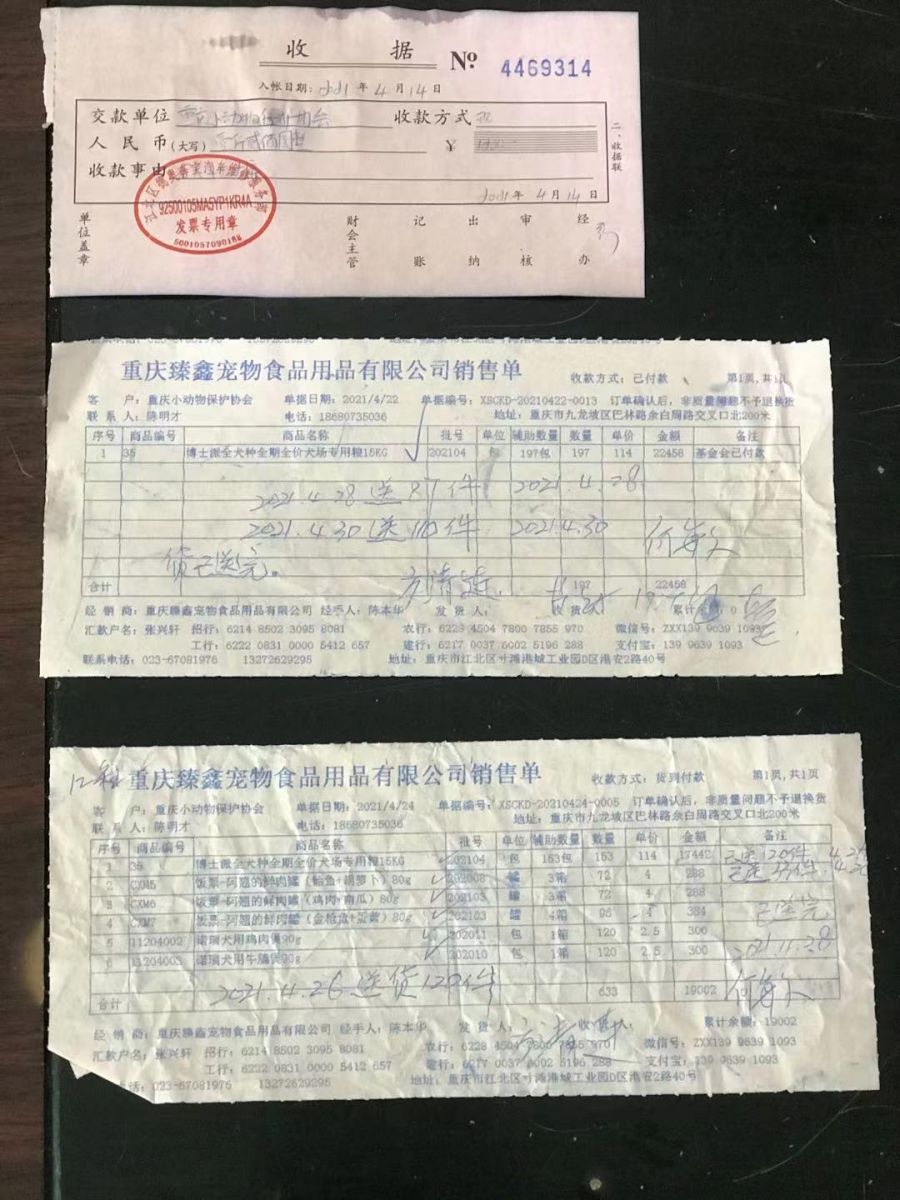 收 据 № 4469314
入帐日期：2021 年 4 月 14 日
交款单位 收款方式
人 民 币（大写） ￥
收款事由
2021 年 4 月 14 日
二、收据联
92500105MA5YP1KR4A
发票专用章
5001057090188
单位盖章 财会主管 记账 出纳 审核 经办
重庆臻鑫宠物食品用品有限公司销售单 收款方式：已付款 第1页,共1页
客 户：重庆小动物保护协会 单据日期：2021/4/22 单据编号：XSCKD-20210422-0013 订单确认后，非质量问题不予退换货
联 系 人：陈明才 电话：18680735036 地址：重庆市九龙坡区巴林路余白周路交叉口北200米
序号 商品编号 商品名称 批号 单位 辅助数量 数量 单价 金额 备注
1 35 博士派全犬种全期全价犬场专用粮15KG 202104 包 197包 197 114 22458 基金会已付款
2021.4.28送87件 2021.4.28
2021.4.30送110件 2021.4.30
货已送完。
合计 197 22458
经 销 商：重庆臻鑫宠物食品用品有限公司 经手人：陈本华 发 货 人： 收 货 累计余额：0
汇款户名：张兴轩 招行：6214 8502 3095 8081 农行：6228 4504 7800 7855 970 微信号：ZXX139 9639 1093
工行：6222 0831 0000 5412 657 建行：6217 0037 6002 5196 288 支付宝：139 9639 1093
联系电话：023-67081976 13272629295 地址：重庆市江北区寸滩港城工业园D区港安2路40号
重庆臻鑫宠物食品用品有限公司销售单 收款方式：货到付款 第1页,共1页
客 户：重庆小动物保护协会 单据日期：2021/4/24 单据编号：XSCKD-20210424-0005 订单确认后，非质量问题不予退换货
联 系 人：陈明才 电话：18680735036 地址：重庆市九龙坡区巴林路余白周路交叉口北200米
序号 商品编号 商品名称 批号 单位 辅助数量 数量 单价 金额 备注
1 35 博士派全犬种全期全价犬场专用粮15KG 202104 包 153包 153 114 17442 已送120件
2 CXM5 饭票-阿翘的鲜肉罐（鲐鱼+胡萝卜）80g 202008 罐 3箱 72 4 288
3 CXM6 饭票-阿翘的鲜肉罐（鸡肉+南瓜）80g 202103 罐 3箱 72 4 288
4 CXM7 饭票-阿翘的鲜肉罐（金枪鱼+蛋黄）80g 202103 罐 4箱 96 4 384 已送完
5 11204002 诺瑞犬用鸡肉煲90g 202011 包 1箱 120 2.5 300
6 11204003 诺瑞犬用牛腩煲90g 202010 包 1箱 120 2.5 300
2021.4.26送货120件
合计 633 19002
经 销 商：重庆臻鑫宠物食品用品有限公司 经手人：陈本华 发 货 人： 收 货 累计余额：19002
汇款户名：张兴轩 招行：6214 8502 3095 8081 农行：6228 4504 7800 7855 970 微信号：ZXX139 9639 1093
工行：6222 0831 0000 5412 657 建行：6217 0037 6002 5196 288 支付宝：139 9639 1093
电话：023-67081976 13272629295 地址：重庆市江北区寸滩港城工业园D区港安2路40号